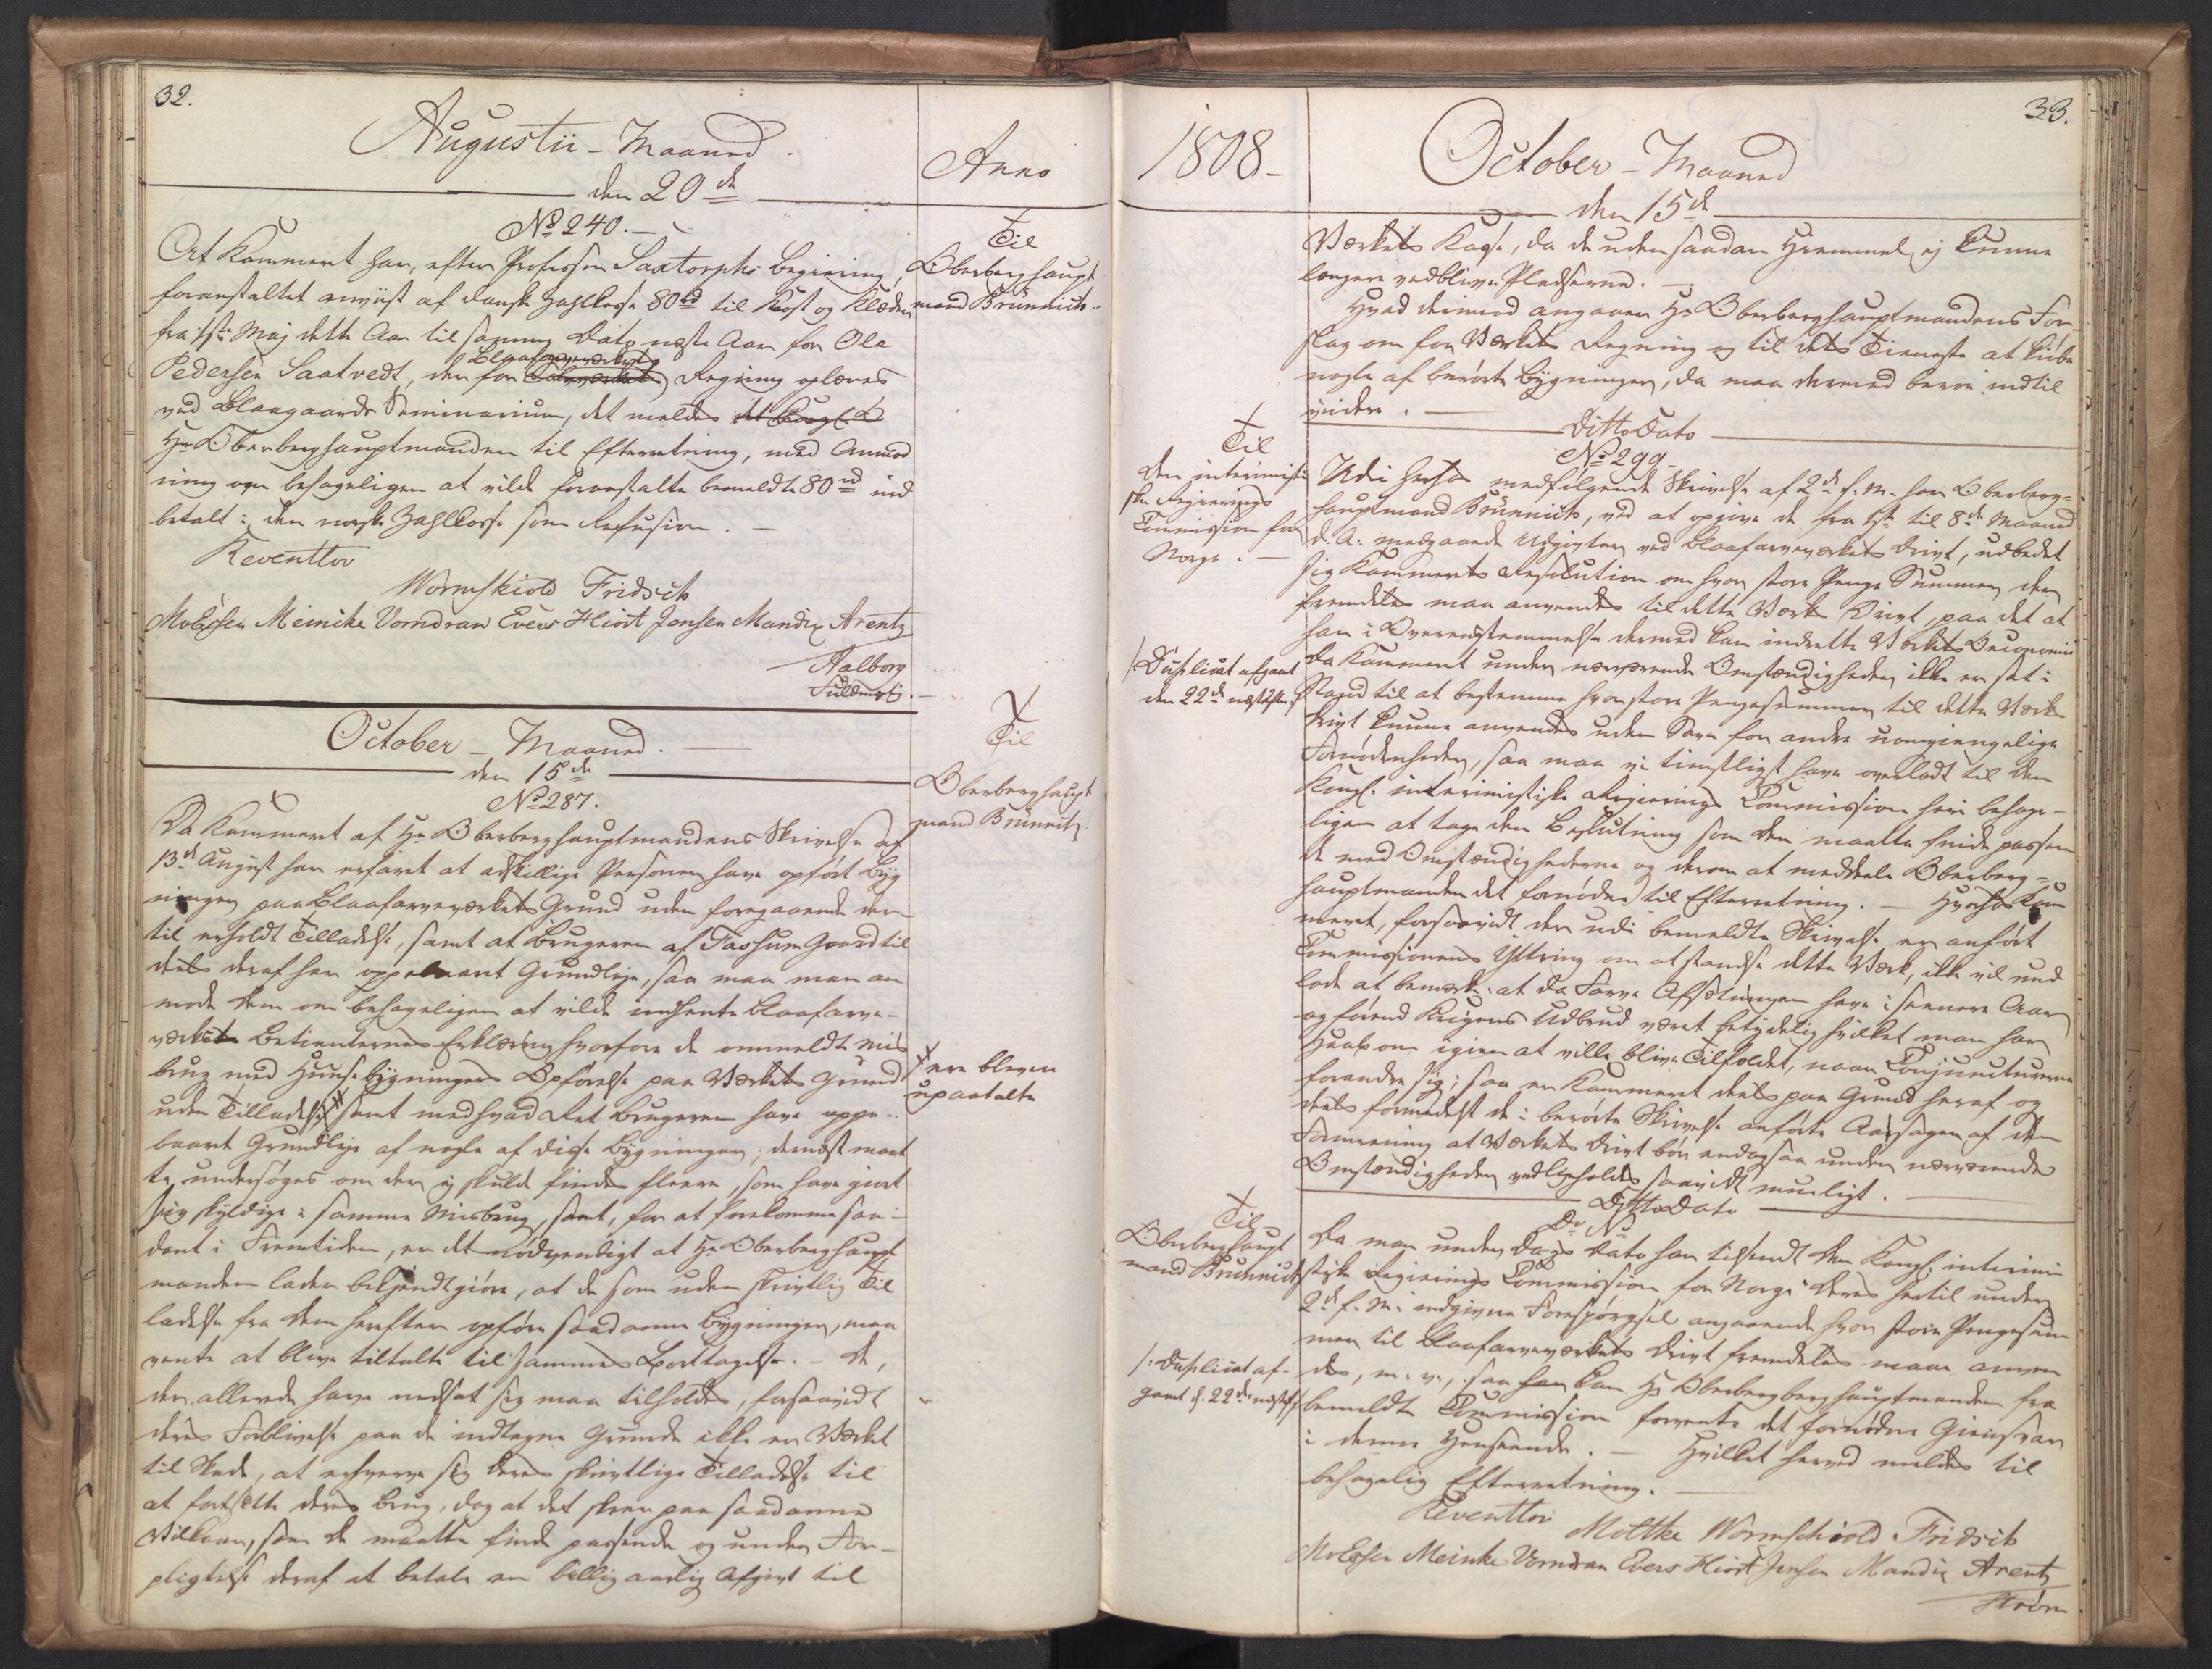 32.
Augustii - Maaned.
Anno
den 20de
No 240.
Til
Oberberghaupt
mand Brünnich.
At Kammeret har, efter Professor Saxtorphs Begiering,
foranstaltet anviist af danske Zahlkasse 80rd til Kost og Klæder
fra 1ste Maj dette Aar til samme Dato næste Aar for Ole
Blaafarveværkets
Pedersen Saatvedt, der for Sølvværkets Regning oplæres
ved Blaagaards Seminarium, det meldes det Kongl.
Hr Oberberghauptmanden til Efterretning, med Anmod
ning om behageligen at vilde foranstalte bemeldte 80rd ind
betalt i den norske Zahlkasse som Refusion. —
Reventlov
Wormskiold Fridsch
Meinike Vorndran Evers Hiort Jensen Mandix Arentz
Aalborg
Fuldmægtig.
October - Maaned.
den 15de
No 287.
Til
Oberberghaupt
mand Brünnich.
Da Kammeret af Hr Oberberghauptmandens Skrivelse af
13de August har erfaret at adskillige Personer have opført Byg
ninger paa Blaafarveværkets Grund uden foregaaende der-
til erholdt Tilladelse, samt at Brugeren af Fossum Gaard til
deels deraf har oppebaaret Grundleje, saa maa man an
mode Dem om behageligen at vilde indhente Blaafarve-
værkets Betienternes Erklæring hvorfore de ommeldte Mis
brug med Huusebygningers Opførelse paa Værkets Grund
uden Tilladelse samt med hvad Ret Brugeren have oppe-
ere bleven
upaatalte
baaret Grundleje af nogle af disse Bygninger; dernæst maat
te undersøges om der ej skulde findes fleere, som have giort
sig skyldige i samme Misbrug, samt, for at forekomme saa-
dant i Fremtiden, er det nødvendigt at Hr Oberberghaupt
manden lader bekiendtgiøre, at de som uden skriftlig Til
ladelse fra Dem herefter opføre saadanne Bygninger, maa
vente at blive tiltalte til sammes Borttagelse. — De,
der allerede have nedsat sig maa tilholdes, forsaavidt
deres Forblivelse paa de indtagne Grunde ikke er Værket
til Skade, at erhverve sig Deres skriftlige Tilladelse til
at fortsætte deres Brug, dog at det skeer paa saadanne
Vilkaar, som De maatte finde passende og under For-
pligtelse deraf at betale en billig aarlig Afgivt til
33.
1808-
October - Maaned
den 15de
Værkets Kasse, da de uden saadan Hiemmel ej kunne
længere vedblive Pladserne. —
Hvad derimod angaaer Hr Oberberghauptmandens For-
slag om for Værkets Regning og til dets Tieneste at kiøbe
nogle af berørte Bygninger, da maa dermed beroe indtil
videre. —
Ditto Dato
No 299
Til
den interimisti
ske Regierings
Commission for
Norge. —
Udi hoshos medfølgende Skrivelse af 2de f. M. har Oberberg-
hauptmand Brünnich, ved at opgive de fra 1ste til 8de Maaned
d. A. medgaaede Udgivter ved Blaafarveværkets Drivt, udbedet
sig Kammerets Resolution om hvor store Penge Summer der
fremdeles maa anvendes til dette Værks Drivt, paa det at
han i Overeensstemmelse dermed kan indrette Værkets Oeconomie
/: Duplicat afgaaet
den 22de næstefter :/
Da Kammeret under nærværende Omstændigheder ikke er sat i
Stand til at bestemme hvor store Pengesummer til dette Værks
Drivt kunne anvendes uden Savn for andre uomgiengelige
Fornødenheder, saa maa vi tienstligst have overladt til den
Kongl. interimistiske Regierings Commission heri behage-
ligen at tage den Beslutning som den maatte finde passen
de med Omstændighederne og derom at meddele Oberberg-
hauptmanden det fornødne til Efterretning. — Hvorhos Kam
meret, forsaavidt der udi bemeldte Skrivelse er anført
Commissionens Yttring om at standse dette Værk, ikke vil und
lade at bemærke: at da Farve Afsætningen have i seenere Aar
og førend Krigens Udbrud været betydelig hvilket man har
Haab om igien at ville blive Tilfældet, naar Conjuncturerne
forandre sig; saa er Kammeret deels paa Grund heraf og
deels formedelst de i berørte Skrivelse anførte Aarsager af den
Formeening at Værkets Drivt bør endogsaa under nærværende
Omstændigheder vedligeholdes saavidt mueligt. —
Ditto Dato
Do No
Til
Oberberghaupt
mand Brünnich
Da man under Dags Dato har tilsendt den Kongl. interimi
stiske Regierings Commission for Norge Deres hertil under
2de f. M. indgivne Forespørgsel angaaende hvor store Pengesum
mer til Blaafarveværkets Drivt fremdeles maae anven
des, m. v., saa han kan Hr Oberbergberghauptmanden fra
/: Duplicat af-
gaaet d. 22de næstefter :/
bemeldte Commission forvente det fornødne Giensvar
i denne Henseende. — Hvilket herved meldes til
behagelig Efterretning. —
Reventlov
Moltke Wormskiold Fridsch
Meinike Vorndran Evers Hiort Jensen Mandix Arentz
Strøm